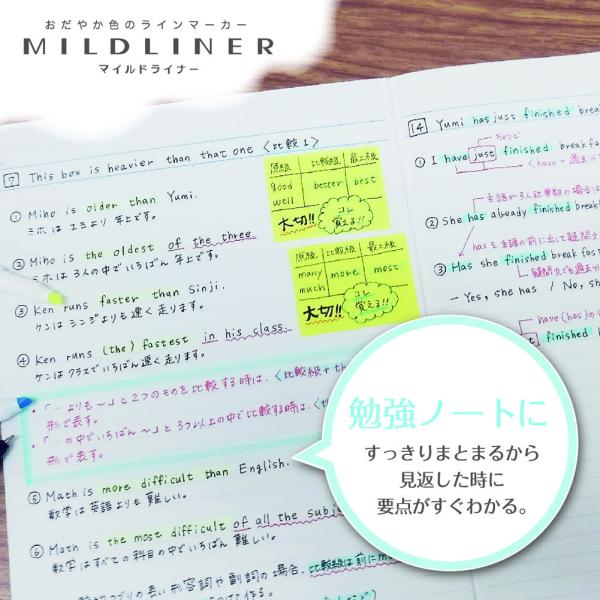 おだやか色のラインマーカー
MILDLINER
マイルドライナー
7 This box is heavier than that one 〈比較1〉
① Miho is older than Yumi.
ミホは ユミより 年上です。
② Miho is the oldest of the three.
ミホは 3人の中でいちばん 年上です。
③ Ken runs faster than Sinji.
ケンは シンジよりも 速く 走ります。
④ Ken runs (the) fastest in his class.
ケンは クラスでいちばん 速く 走ります。
・「…よりも〜」と2つのものを比較する時は、〈比較級+th
形で表す。
・「…の中でいちばん〜」と3つ以上の中で比較する時は、〈th
形で表す。
⑤ Math is more difficult than English.
数学は 英語よりも 難しい。
⑥ Math is the most difficult of all the subje
数学は すべての 科目の中で いちばん 難しい。
の長い 形容詞や 副詞の 場合、比較級は前にm
原級 比較級 最上級
good better best
well
大切!!
コレ
覚える!!
原級 比較級 最上級
many more most
much
大切!!
コレ
覚える!!
14 Yumi has just finished brea
ちょうど
① I have just finished breakfa
〈have + 過去分
主語が3人称単数の場合は
② She has already finished break
hasを主語の前に出して疑問文
③ Has she finished breakfast
疑問文でも過去分
– Yes, she has / No, sh
have(has)の
finished b
勉強ノートに
すっきりまとまるから
見返した時に
要点がすぐわかる。